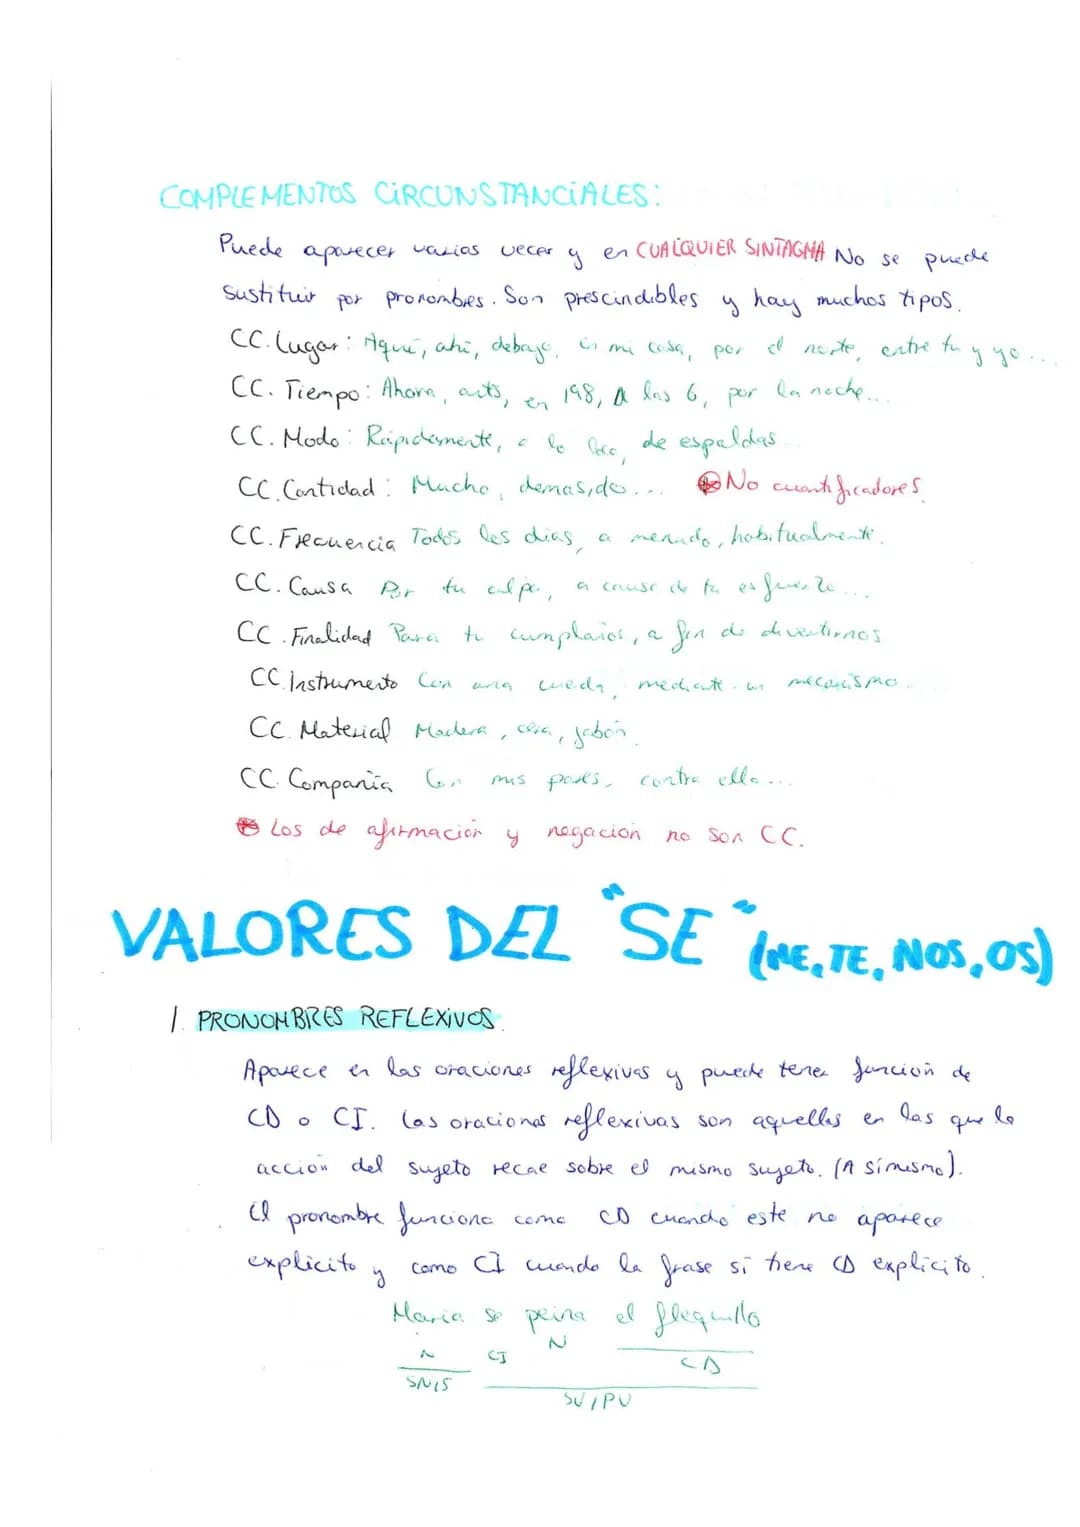 COMPLEMENTOS CIRCUNSTANCIALES:
Puede aparecer varias veces y en CUALQUIER SINTAGMA No se puede
sustituir por pronombres. Son prescindibles y hay muchos tipos.
CC. Lugar: Aquí, ahí, debajo, en mi casa, por el norte, entre tu y yo...
CC. Tiempo: Ahora, antes, en 198, A las 6, por la noche...
CC. Modo: Rápidamente, a lo loco, de espaldas
CC. Cantidad: Mucho, demasiado... No cuantificadores.
CC. Frecuencia Todos los dias, a menudo, habitualmente.
CC. Causa Por tu culpa, a causa de tu esfuerzo...
CC. Finalidad Para tu cumplaños, a fin de divertirnos
CC. Instrumento Con una cuerda, mediante un mecanismo.
CC. Material Madera, cera, jabón
CC. Compañia Con mis padres, contra ella...
Los de afirmación y negación no son CC.
VALORES DEL "SE" (ME, TE, NOS, OS)
1. PRONOMBRES REFLEXIVOS.
Aparece en las oraciones reflexivas y puede tener función de
CD o CI. Las oraciones reflexivas son aquellas en las que la
acción del sujeto recae sobre el mismo sujeto. (A sí mismo).
El pronombre funciona como CD cuando este no aparece
explícito y como CI cuando la frase sí tiene CD explícito.
Maria se peina el flequillo
N CI N CD
SN/S
SV/PV